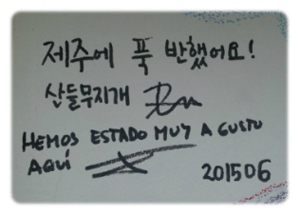 제주에 푹 반했어요!
산들무지개
HEMOS ESTADO MUY A GUSTO
AQUÍ
201506